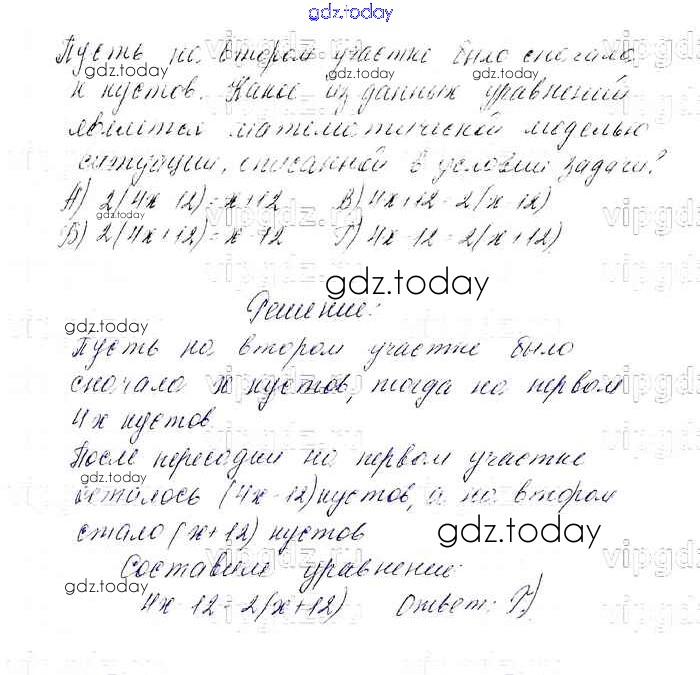 gdz.today
Пусть на втором участке было сначала
х кустов. Какое из данных уравнений
является математической моделью
ситуации, описанной в условии задачи?
А) 2(4x-12)=x+12 В) 4x+12=2(x-12)
Б) 2(4x+12)=x-12 Г) 4x-12=2(x+12)
gdz.today
Решение:
Пусть на втором участке было
сначала х кустов, тогда на первом
4х кустов.
После пересадки на первом участке
осталось (4x-12) кустов, а на втором
стало (x+12) кустов
gdz.today
Составим уравнение:
4x-12=2(x+12) Ответ: Г)